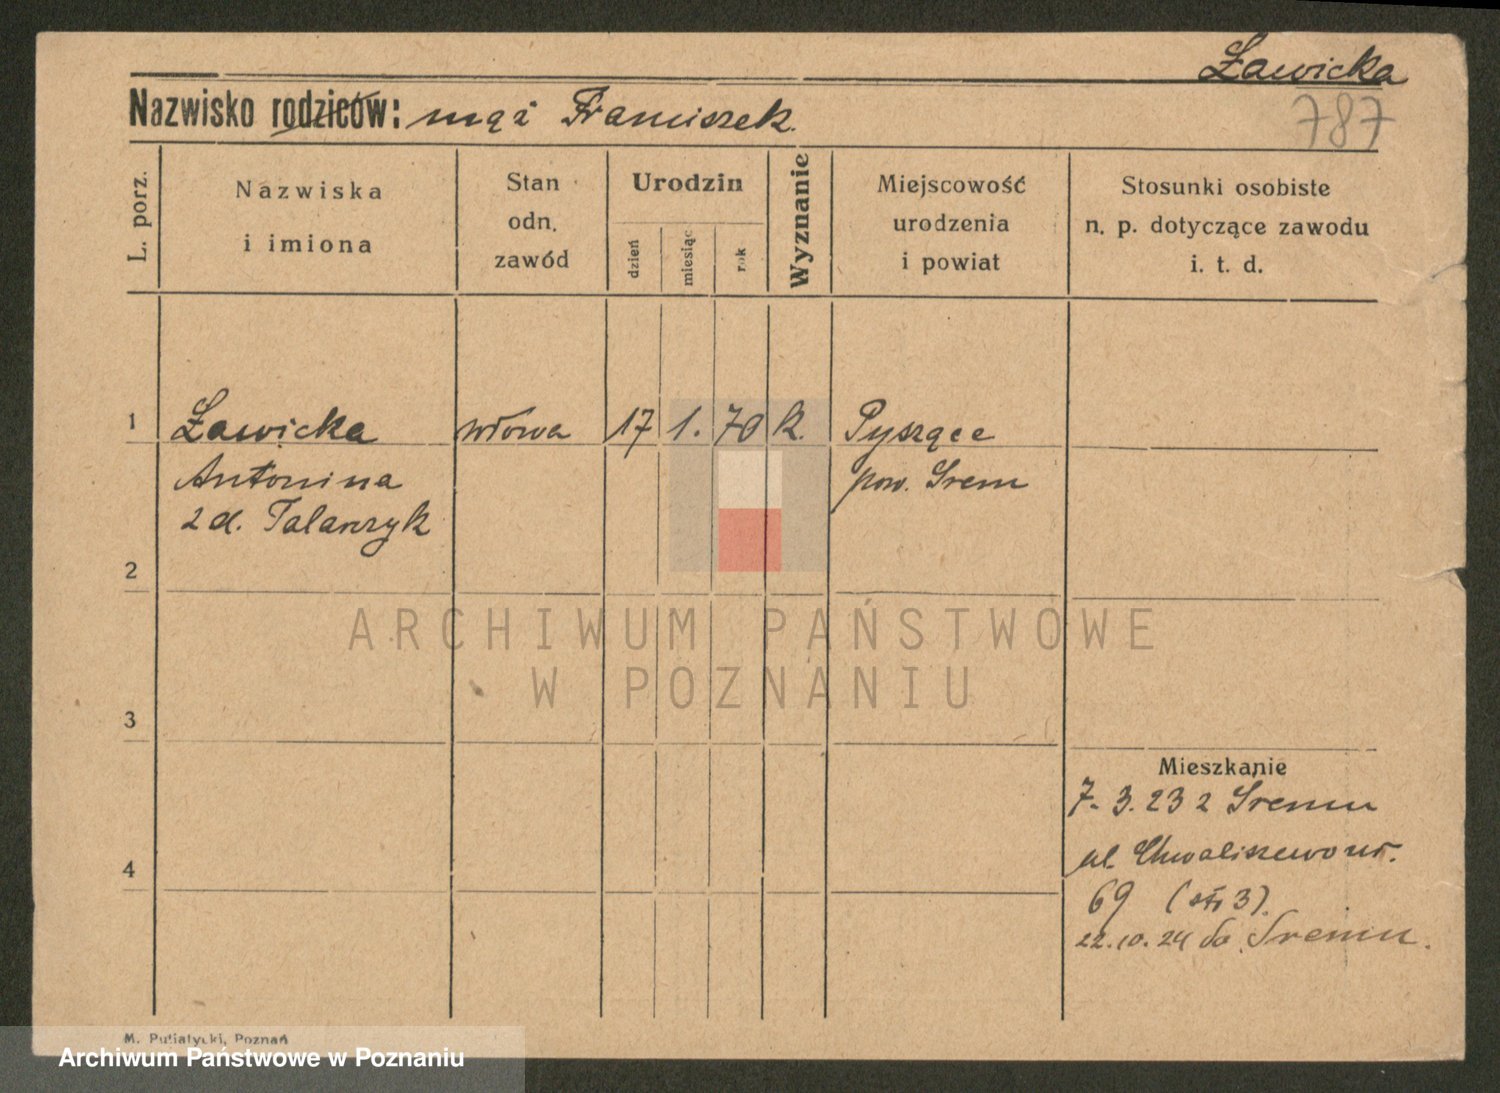 Ławicka
Nazwisko rodziców: mąż Franciszek.
787
L. porz.
Nazwiska
i imiona
Stan
odn.
zawód
Urodzin
dzień
miesiąc
rok
Wyznanie
Miejscowość
urodzenia
i powiat
Stosunki osobiste
n. p. dotyczące zawodu
i. t. d.
1 Ławicka wdowa 17 1. 70 k. Pysząca
Antonina pow. Śrem
z d. Talarczyk
2
ARCHIWUM PAŃSTWOWE
W POZNANIU
3
Mieszkanie
7. 3. 23 z Śremu
ul. Chwaliszewo nr.
4
69 (str 3).
22.10.24 do Śremu.
M. Putiatycki, Poznań
Archiwum Państwowe w Poznaniu